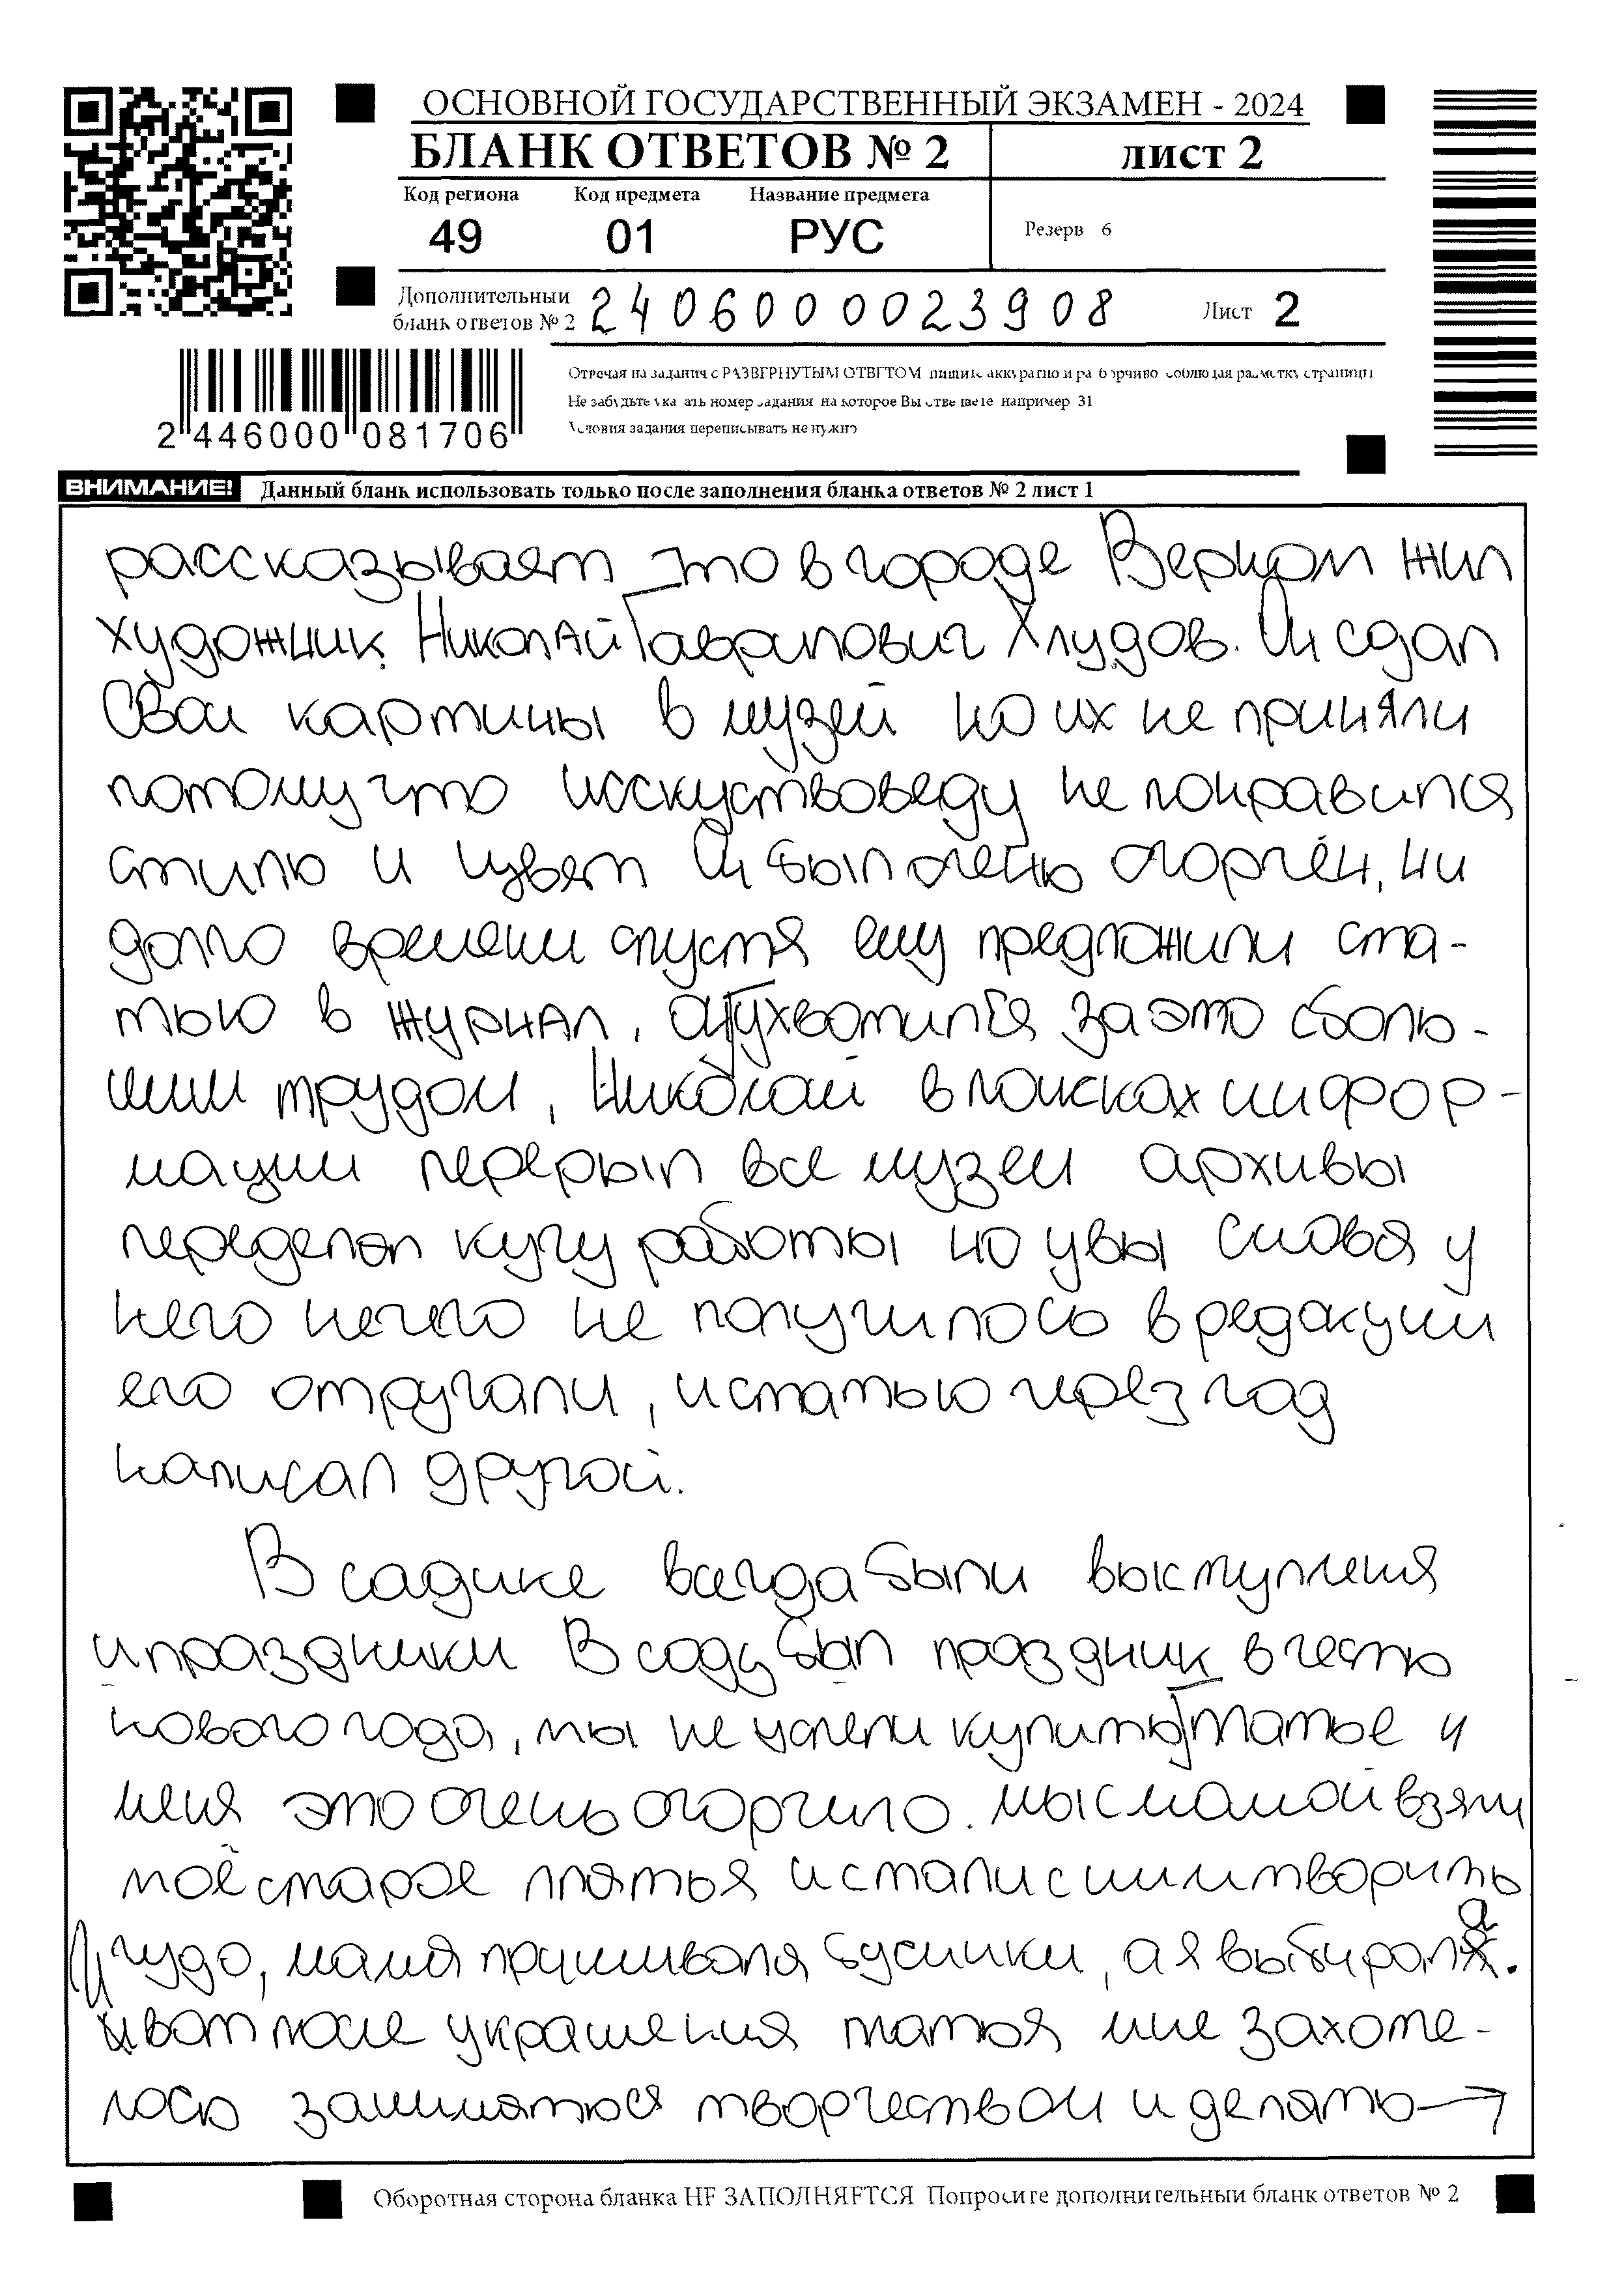 ОСНОВНОЙ ГОСУДАРСТВЕННЫЙ ЭКЗАМЕН - 2024
БЛАНК ОТВЕТОВ № 2
ЛИСТ 2
Код региона Код предмета Название предмета
49 01 РУС
Резерв 6
Дополнительный бланк ответов № 2 2406000023908
Лист 2
2 446000 081706
Отвечая на задания с РАЗВЕРНУТЫМ ОТВЕТОМ пишите аккуратно и разборчиво соблюдая разметку страницы
Не забудьте указать номер задания на которое Вы отвечаете например 31
Условия задания переписывать не нужно
ВНИМАНИЕ! Данный бланк использовать только после заполнения бланка ответов № 2 лист 1
рассказывает что в городе Верном жил
художник Николай Гаврилович Хлудов. Он сдал
Свои картины в музей но их не приняли
потому что исскуствоведу не понравился
стиль и цвет Он был очень огорчён, ни
долго времени спустя ему предложили ста-
тью в журнал, Он ухватился за это с боль-
шим трудом, Николай в поисках инфор-
мации перерыл все музеи архивы
переделал кучу работы но увы снова у
него нечего не получилось в редакции
его отругали, и статью через год
написал другой.
В садике всегда были выступления
и праздники В саду был праздник в честь
нового года, мы не успели купить платье и
меня это очень огорчило. мы с мамой взяли
моё старое платья и стали с ним творить
чудо, мама пришивала бусинки, а я выбирала.
И вот после украшения платья мне захоте-
лось заниматься творчеством и делать →
Оборотная сторона бланка НЕ ЗАПОЛНЯЕТСЯ Попросите дополнительный бланк ответов № 2